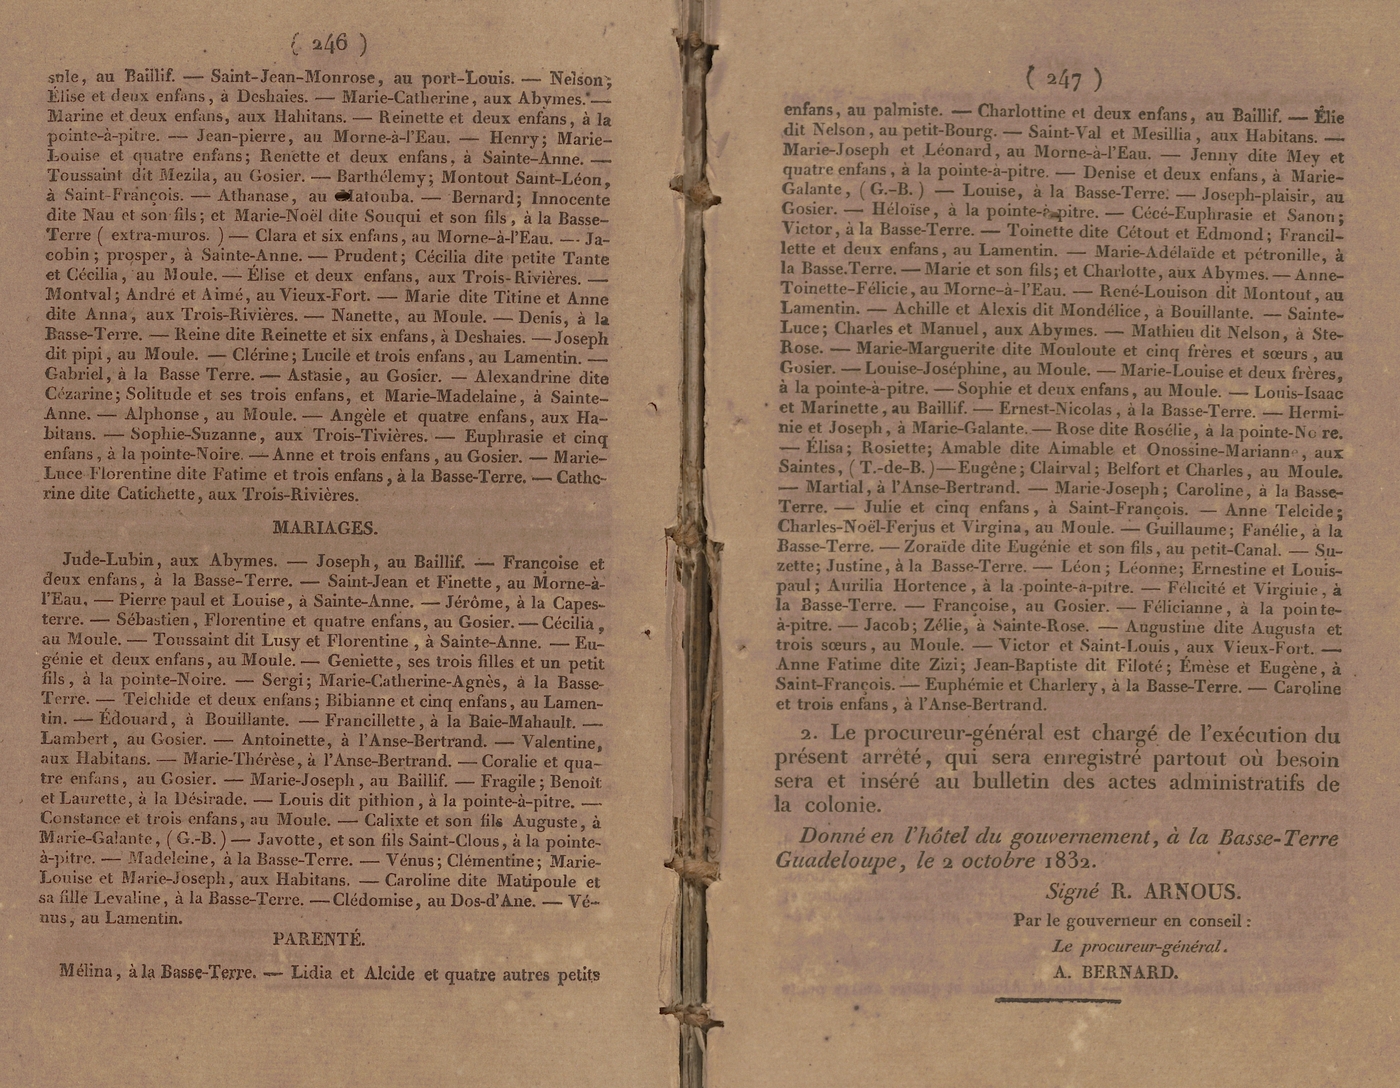 ( 246 )
sule, au Baillif. — Saint-Jean-Monrose, au port-Louis. — Nelson;
Élise et deux enfans, à Deshaies. — Marie-Catherine, aux Abymes. —
Marine et deux enfans, aux Habitans. — Reinette et deux enfans, à la
pointe-à-pitre. — Jean-pierre, au Morne-à-l'Eau. — Henry; Marie-
Louise et quatre enfans; Renette et deux enfans, à Sainte-Anne. —
Toussaint dit Mezila, au Gosier. — Barthélemy; Montout Saint-Léon,
à Saint-François. — Athanase, au Matouba. — Bernard; Innocente
dite Nau et son fils; et Marie-Noël dite Souqui et son fils, à la Basse-
Terre ( extra-muros. ) — Clara et six enfans, au Morne-à-l'Eau. — Ja-
cobin; prosper, à Sainte-Anne. — Prudent; Cécilia dite petite Tante
et Cécilia, au Moule. — Élise et deux enfans, aux Trois-Rivières. —
Montval; André et Aimé, au Vieux-Fort. — Marie dite Titine et Anne
dite Anna, aux Trois-Rivières. — Nanette, au Moule. — Denis, à la
Basse-Terre. — Reine dite Reinette et six enfans, à Deshaies. — Joseph
dit pipi, au Moule. — Clérine; Lucile et trois enfans, au Lamentin. —
Gabriel, à la Basse Terre. — Astasie, au Gosier. — Alexandrine dite
Cézarine; Solitude et ses trois enfans, et Marie-Madelaine, à Sainte-
Anne. — Alphonse, au Moule. — Angèle et quatre enfans, aux Ha-
bitans. — Sophie-Suzanne, aux Trois-Tivières. — Euphrasie et cinq
enfans, à la pointe-Noire. — Anne et trois enfans, au Gosier. — Marie-
Luce Florentine dite Fatime et trois enfans, à la Basse-Terre. — Cathe-
rine dite Catichette, aux Trois-Rivières.
MARIAGES.
Jude-Lubin, aux Abymes. — Joseph, au Baillif. — Françoise et
deux enfans, à la Basse-Terre. — Saint-Jean et Finette, au Morne-à-
l'Eau. — Pierre paul et Louise, à Sainte-Anne. — Jérôme, à la Capes-
terre. — Sébastien, Florentine et quatre enfans, au Gosier. — Cécilia,
au Moule. — Toussaint dit Lusy et Florentine, à Sainte-Anne. — Eu-
génie et deux enfans, au Moule. — Geniette, ses trois filles et un petit
fils, à la pointe-Noire. — Sergi; Marie-Catherine-Agnès, à la Basse-
Terre. — Telchide et deux enfans; Bibianne et cinq enfans, au Lamen-
tin. — Édouard, à Bouillante. — Francillette, à la Baie-Mahault. —
Lambert, au Gosier. — Antoinette, à l'Anse-Bertrand. — Valentine,
aux Habitans. — Marie-Thérèse, à l'Anse-Bertrand. — Coralie et qua-
tre enfans, au Gosier. — Marie-Joseph, au Baillif. — Fragile; Benoit
et Laurette, à la Désirade. — Louis dit pithion, à la pointe-à-pitre. —
Constance et trois enfans, au Moule. — Calixte et son fils Auguste, à
Marie-Galante, ( G.-B. ) — Javotte, et son fils Saint-Clous, à la pointe-
à-pitre. — Madeleine, à la Basse-Terre. — Vénus; Clémentine; Marie-
Louise et Marie-Joseph, aux Habitans. — Caroline dite Matipoule et
sa fille Levaline, à la Basse-Terre. — Clédomise, au Dos-d'Ane. — Vé-
nus, au Lamentin.
PARENTÉ.
Mélina, à la Basse-Terre. — Lidia et Alcide et quatre autres petits
( 247 )
enfans, au palmiste. — Charlottine et deux enfans, au Baillif. — Élie
dit Nelson, au petit-Bourg. — Saint-Val et Mesillia, aux Habitans. —
Marie-Joseph et Léonard, au Morne-à-l'Eau. — Jenny dite Mey et
quatre enfans, à la pointe-à-pitre. — Denise et deux enfans, à Marie-
Galante, ( G.-B. ) — Louise, à la Basse-Terre. — Joseph-plaisir, au
Gosier. — Héloïse, à la pointe-à-pitre. — Cécé-Euphrasie et Sanon;
Victor, à la Basse-Terre. — Toinette dite Cétout et Edmond; Francil-
lette et deux enfans, au Lamentin. — Marie-Adélaïde et pétronille, à
la Basse.Terre. — Marie et son fils; et Charlotte, aux Abymes. — Anne-
Toinette-Félicie, au Morne-à-l'Eau. — René-Louison dit Montout, au
Lamentin. — Achille et Alexis dit Mondélice, à Bouillante. — Sainte-
Luce; Charles et Manuel, aux Abymes. — Mathieu dit Nelson, à Ste-
Rose. — Marie-Marguerite dite Mouloute et cinq frères et sœurs, au
Gosier. — Louise-Joséphine, au Moule. — Marie-Louise et deux frères,
à la pointe-à-pitre. — Sophie et deux enfans, au Moule. — Louis-Isaac
et Marinette, au Baillif. — Ernest-Nicolas, à la Basse-Terre. — Hermi-
nie et Joseph, à Marie-Galante. — Rose dite Rosélie, à la pointe-No re.
— Élisa; Rosiette; Amable dite Aimable et Onossine-Marianne, aux
Saintes, ( T.-de-B. ) — Eugène; Clairval; Belfort et Charles, au Moule.
— Martial, à l'Anse-Bertrand. — Marie-Joseph; Caroline, à la Basse-
Terre. — Julie et cinq enfans, à Saint-François. — Anne Telcide;
Charles-Noël-Ferjus et Virgina, au Moule. — Guillaume; Fanélie, à la
Basse-Terre. — Zoraïde dite Eugénie et son fils, au petit-Canal. — Su-
zette; Justine, à la Basse-Terre. — Léon; Léonne; Ernestine et Louis-
paul; Aurilia Hortence, à la pointe-a-pitre. — Félicité et Virginie, à
la Basse-Terre. — Françoise, au Gosier. — Félicianne, à la pointe-
à-pitre. — Jacob; Zélie, à Sainte-Rose. — Augustine dite Augusta et
trois sœurs, au Moule. — Victor et Saint-Louis, aux Vieux-Fort. —
Anne Fatime dite Zizi; Jean-Baptiste dit Filoté; Émèse et Eugène, à
Saint-François. — Euphémie et Charlery, à la Basse-Terre. — Caroline
et trois enfans, à l'Anse-Bertrand.
2. Le procureur-général est chargé de l'exécution du
présent arrêté, qui sera enregistré partout où besoin
sera et inséré au bulletin des actes administratifs de
la colonie.
Donné en l'hôtel du gouvernement, à la Basse-Terre
Guadeloupe, le 2 octobre 1832.
Signé R. ARNOUS.
Par le gouverneur en conseil :
Le procureur-général.
A. BERNARD.